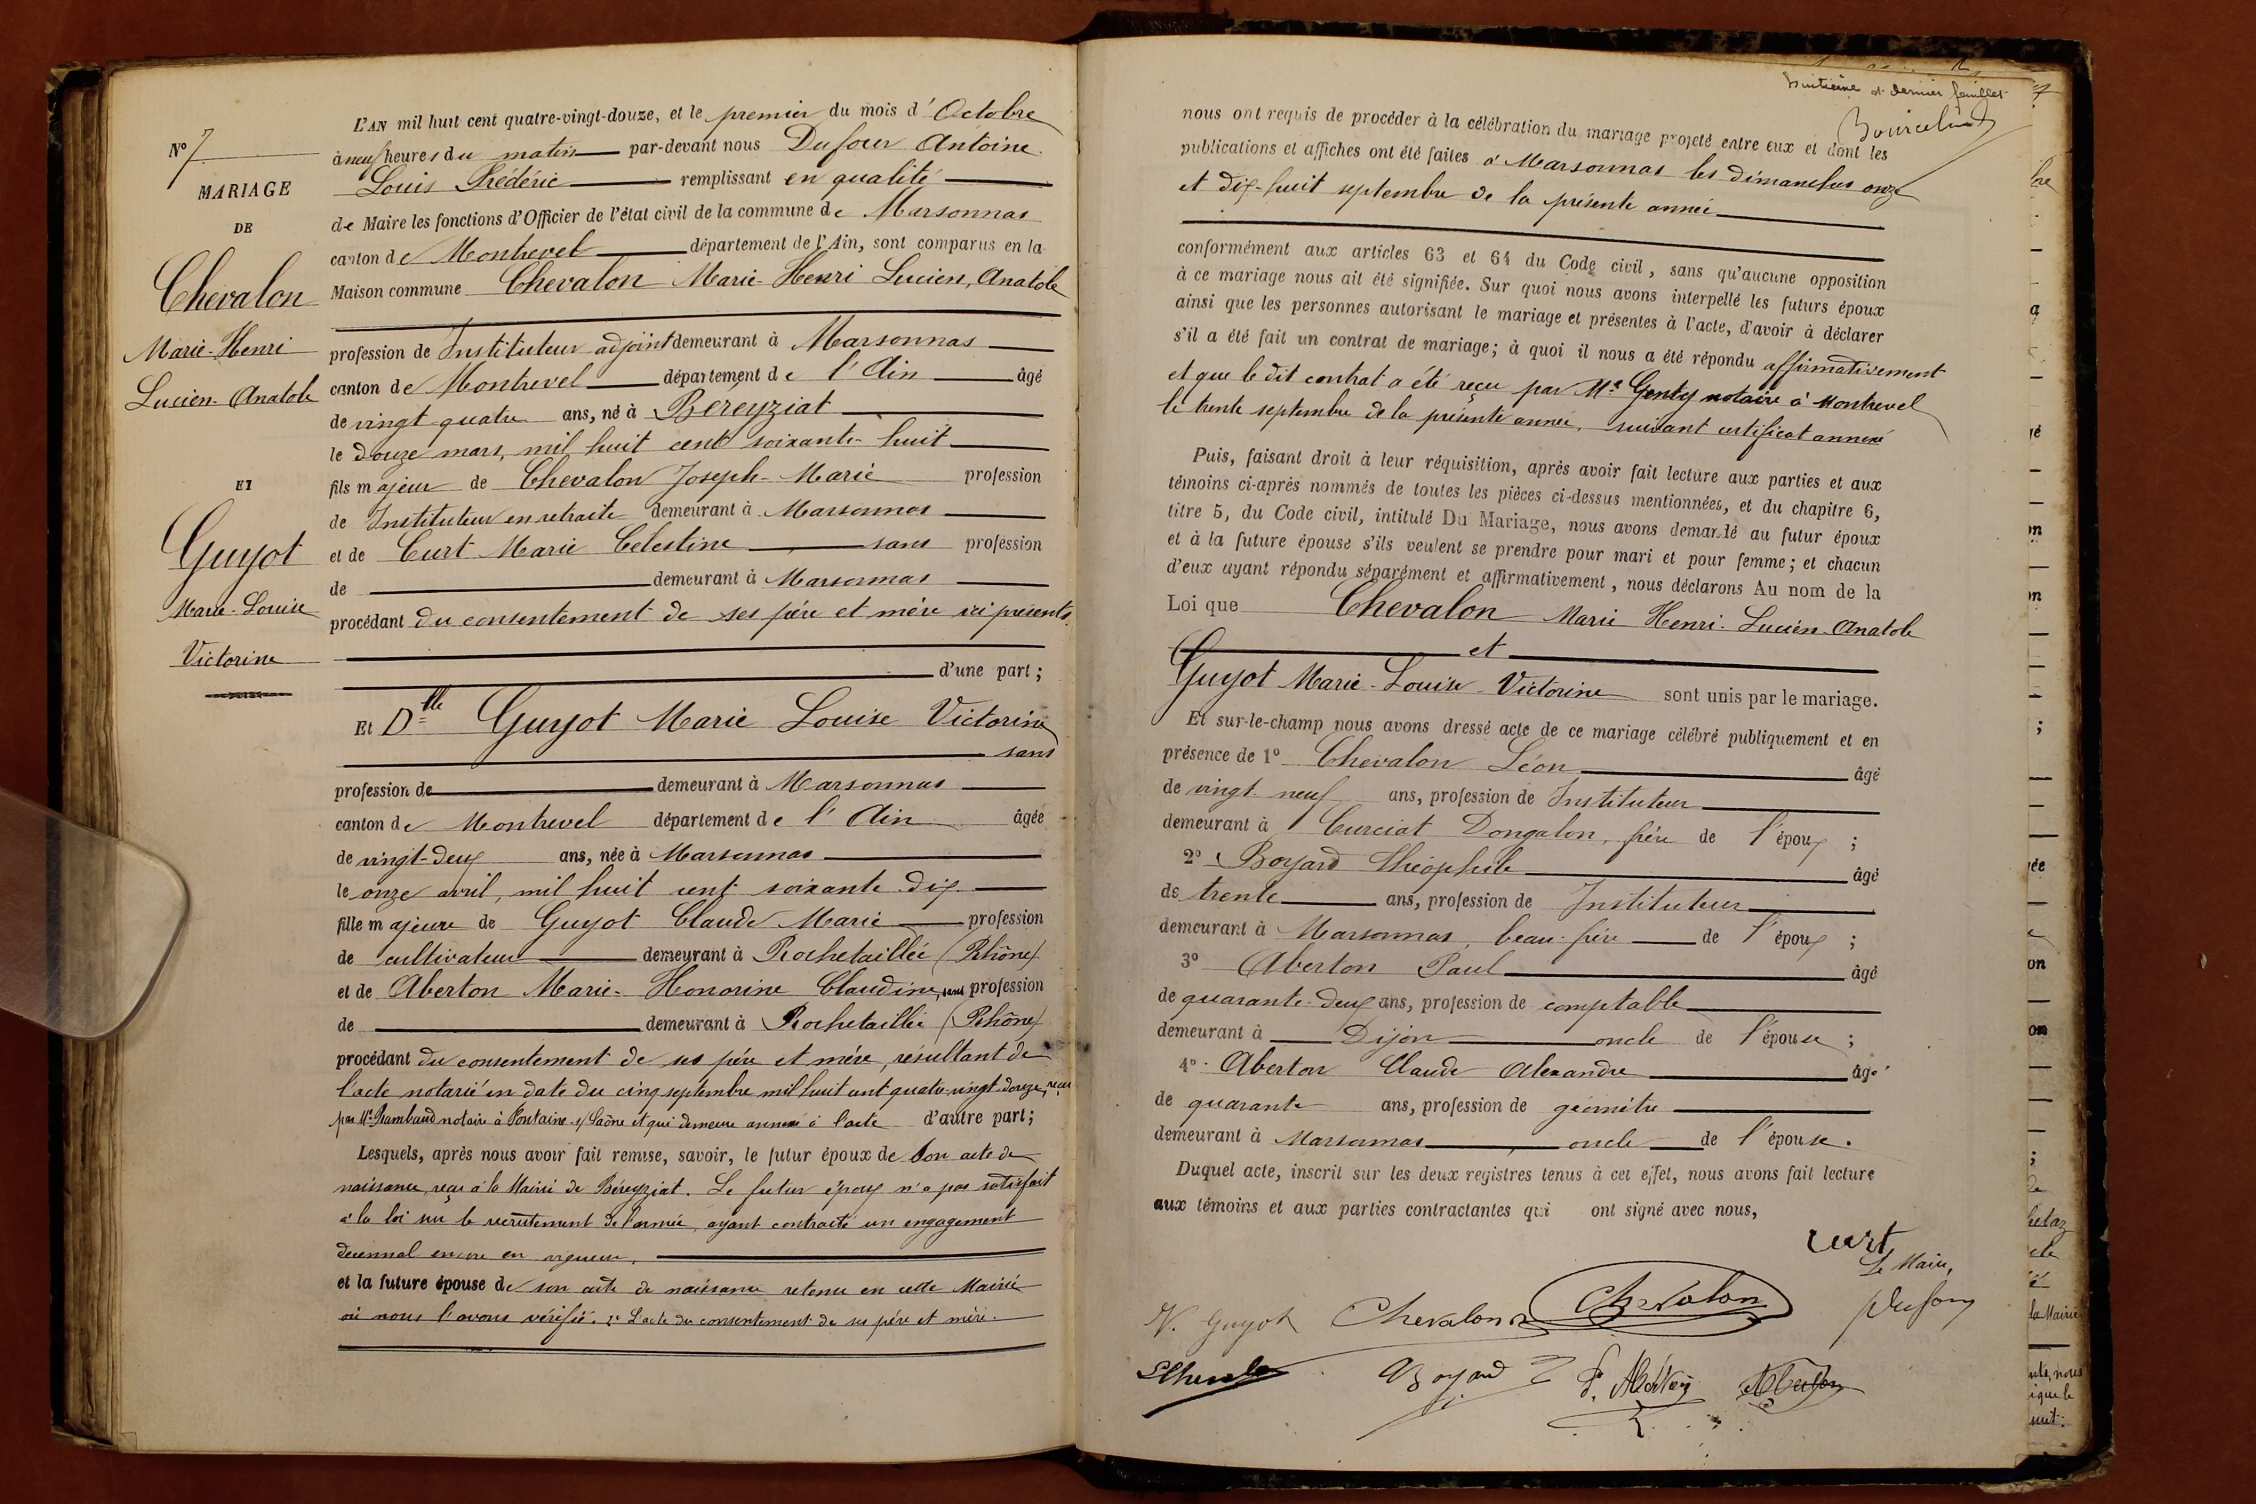 Nº 7
MARIAGE
DE
Chevalon
Marie-Henri
Lucien-Anatole
ET
Guyot
Marie-Louise
Victorine
L'AN mil huit cent quatre-vingt-douze, et le premier du mois d'Octobre
à neuf heures du matin par-devant nous Dufour Antoine
Louis Frédéric remplissant en qualité
de Maire les fonctions d'Officier de l'état civil de la commune de Marsonnas
canton de Montrevel département de l'Ain, sont comparus en la
Maison commune Chevalon Marie-Henri Lucien, Anatole
profession de Instituteur adjoint demeurant à Marsonnas
canton de Montrevel département de l'Ain âgé
de vingt quatre ans, né à Béreyziat
le douze mars, mil huit cent soixante-huit
fils majeur de Chevalon Joseph-Marie profession
de Instituteur en retraite demeurant à Marsonnas
et de Curt Marie Célestine sans profession
de demeurant à Marsonnas
procédant du consentement de ses père et mère ici présents
d'une part;
Et Dlle Guyot Marie Louise Victorine
sans
profession de demeurant à Marsonnas
canton de Montrevel département de l'Ain âgée
de vingt-deux ans, née à Marsonnas
le onze avril, mil huit cent soixante-dix
fille majeure de Guyot Claude Marie profession
de cultivateur demeurant à Rochetaillée (Rhône)
et de Aberton Marie-Honorine Claudine, sans profession
de demeurant à Rochetaillée (Rhône)
procédant du consentement de ses père et mère, résultant de
l'acte notarié en date du cinq septembre mil huit cent quatre-vingt-douze, reçu
par Me Rambaud notaire à Fontaine s/ Saône et qui demeure annexé à l'acte d'autre part;
Lesquels, après nous avoir fait remise, savoir, le futur époux de son acte de
naissance, reçu à la Mairie de Béreyziat. Le futur époux n'a pas satisfait
à la loi sur le recrutement de l'armée, ayant contracté un engagement
décennal encore en vigueur.
et la future épouse de son acte de naissance retenu en cette Mairie
où nous l'avons vérifié. 2º L'acte du consentement de ses père et mère.
huitième et dernier feuillet
nous ont requis de procéder à la célébration du mariage projeté entre eux et dont les
publications et affiches ont été faites à Marsonnas les dimanches onze
et dix-huit septembre de la présente année
conformément aux articles 63 et 64 du Code civil, sans qu'aucune opposition
à ce mariage nous ait été signifiée. Sur quoi nous avons interpellé les futurs époux
ainsi que les personnes autorisant le mariage et présentes à l'acte, d'avoir à déclarer
s'il a été fait un contrat de mariage; à quoi il nous a été répondu affirmativement
et que le dit contrat a été reçu par Me Genty notaire à Montrevel
le trente septembre de la présente année, suivant certificat annexé
Puis, faisant droit à leur réquisition, après avoir fait lecture aux parties et aux
témoins ci-après nommés de toutes les pièces ci-dessus mentionnées, et du chapitre 6,
titre 5, du Code civil, intitulé Du Mariage, nous avons demandé au futur époux
et à la future épouse s'ils veulent se prendre pour mari et pour femme; et chacun
d'eux ayant répondu séparément et affirmativement, nous déclarons Au nom de la
Loi que Chevalon Marie Henri-Lucien-Anatole
et
Guyot Marie-Louise-Victorine sont unis par le mariage.
Et sur-le-champ nous avons dressé acte de ce mariage célébré publiquement et en
présence de 1º Chevalon Léon âgé
de vingt neuf ans, profession de Instituteur
demeurant à Curciat Dongalon, frère de l'époux;
2º Boyard Théophile âgé
de trente ans, profession de Instituteur
demeurant à Marsonnas, beau-frère de l'époux;
3º Aberton Paul âgé
de quarante-deux ans, profession de comptable
demeurant à Dijon oncle de l'épouse;
4º Aberton Claude Alexandre âgé
de quarante ans, profession de géomètre
demeurant à Marsonnas, oncle de l'épouse.
Duquel acte, inscrit sur les deux registres tenus à cet effet, nous avons fait lecture
aux témoins et aux parties contractantes qui ont signé avec nous,
curt
Le Maire,
V. Guyot Chevalon Chevalon Dufour
Boyard